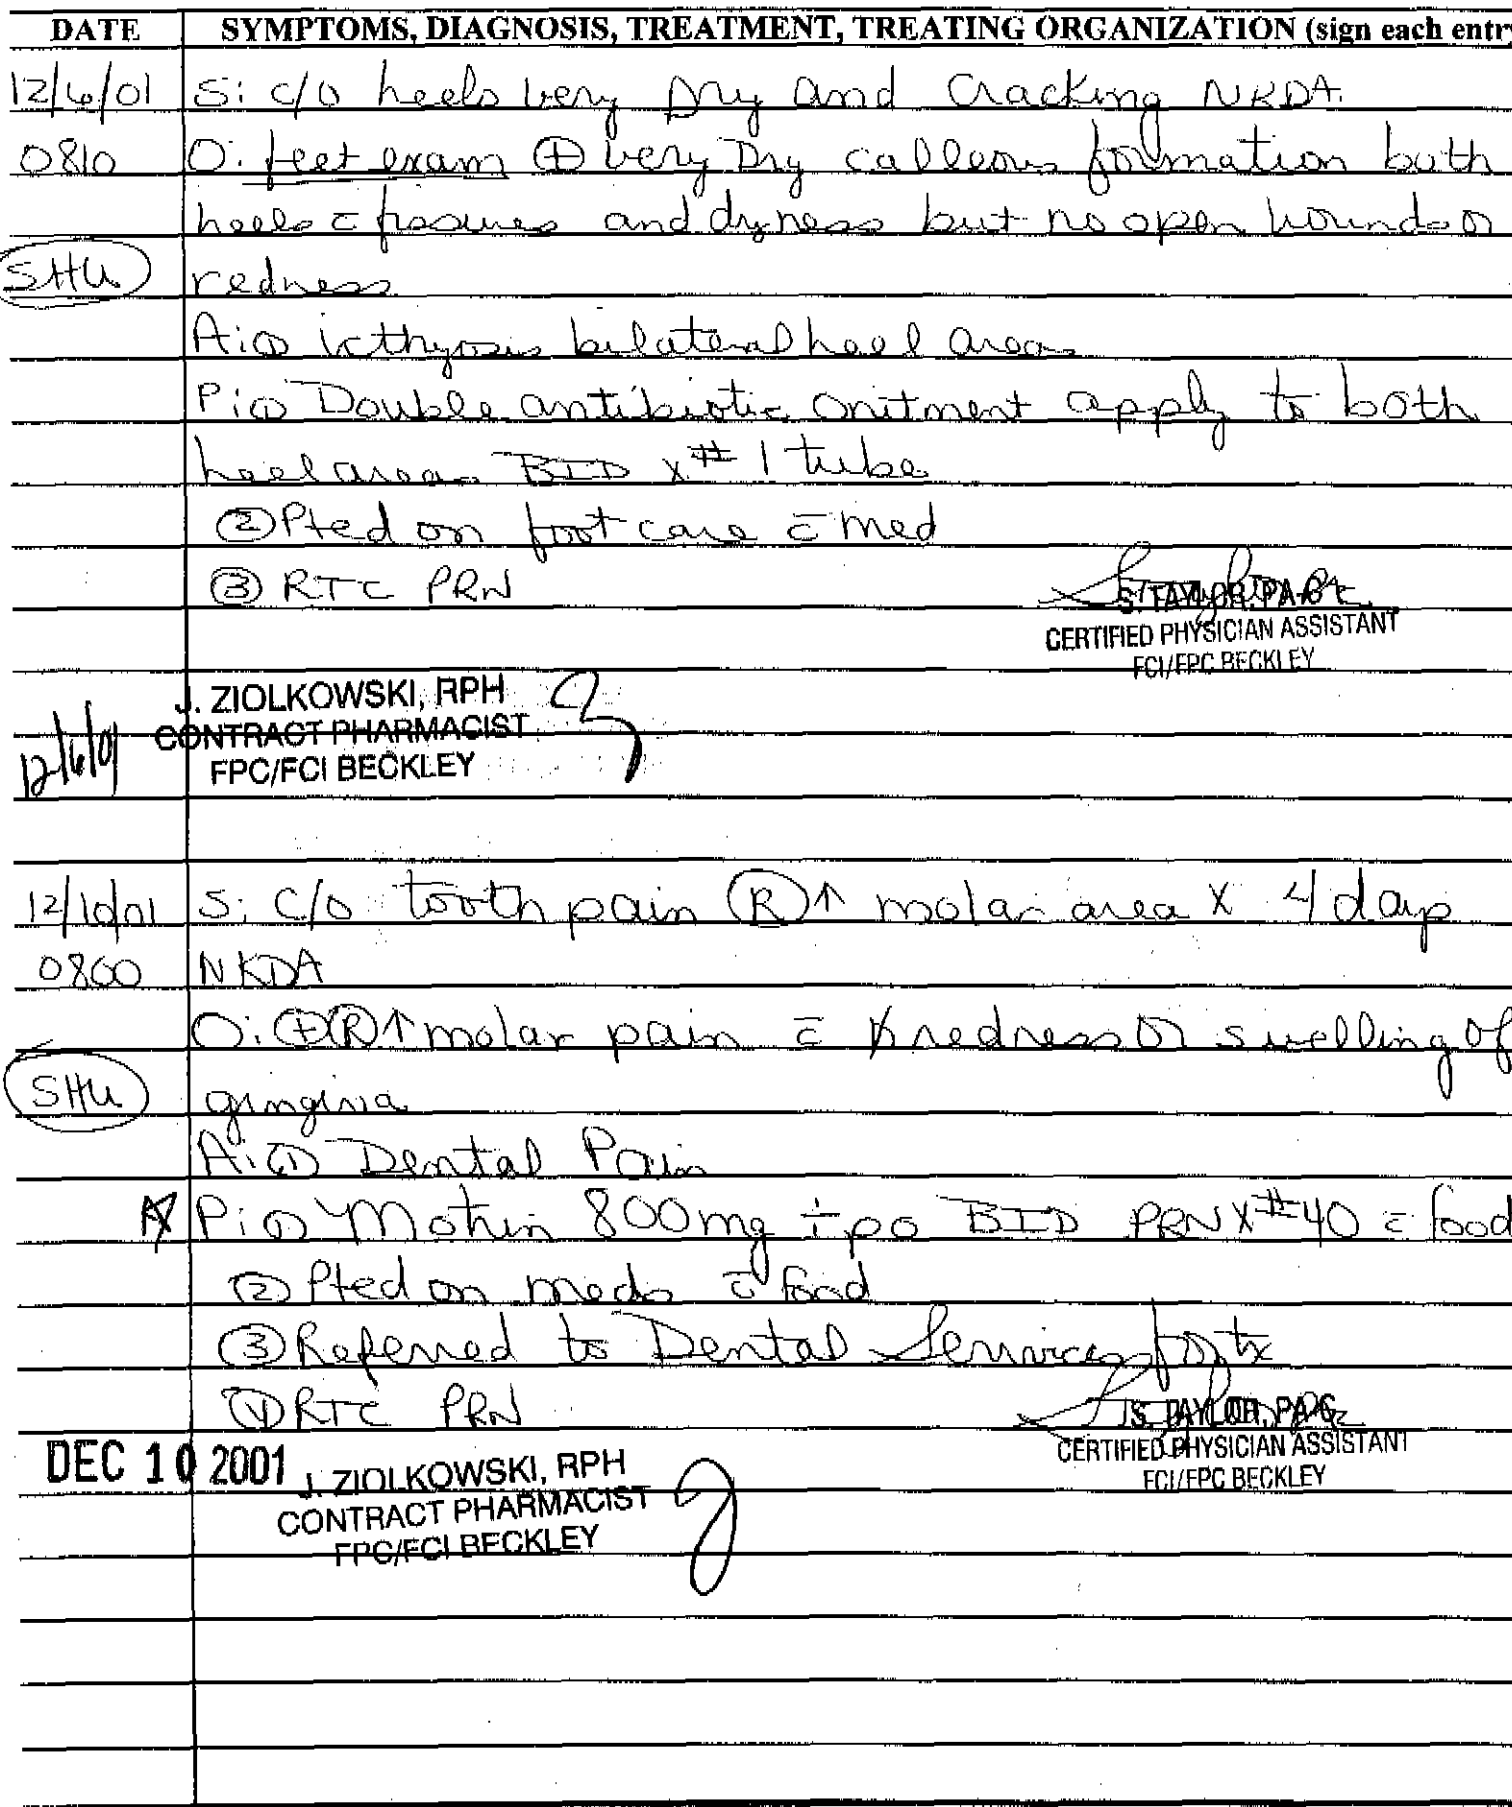 DATE SYMPTOMS, DIAGNOSIS, TREATMENT, TREATING ORGANIZATION (sign each entry
12/6/01 S: c/o heels very Dry and Cracking NKDA.
0810 O: feet exam ⊕ very Dry calleous formation both
heels c̄ fissures and dryness but no open wounds or
SHU redness
A: ① icthyosis bilateral heel areas
P: ① Double antibiotic onitment apply to both
heel areas BID x #1 tube
② Pt ed on foot care c̄ med
③ RTC PRN
S. TAYLOR, PA-C
CERTIFIED PHYSICIAN ASSISTANT
FCI/FPC BECKLEY
J. ZIOLKOWSKI, RPH
CONTRACT PHARMACIST
12/6/01 FPC/FCI BECKLEY
12/10/01 S: c/o tooth pain Ⓡ↑ molar area x 4 days
0800 NKDA
O: ⊕Ⓡ↑ molar pain c̄ redness or swelling of
SHU gingiva
A: ① Dental Pain
P: ① Motrin 800mg i po BID PRN x #40 c̄ food
② Pt ed on meds c̄ food
③ Referred to Dental Services for tx
④ RTC PRN
S. TAYLOR, PA-C
CERTIFIED PHYSICIAN ASSISTANT
FCI/FPC BECKLEY
DEC 10 2001 J. ZIOLKOWSKI, RPH
CONTRACT PHARMACIST
FPC/FCI BECKLEY